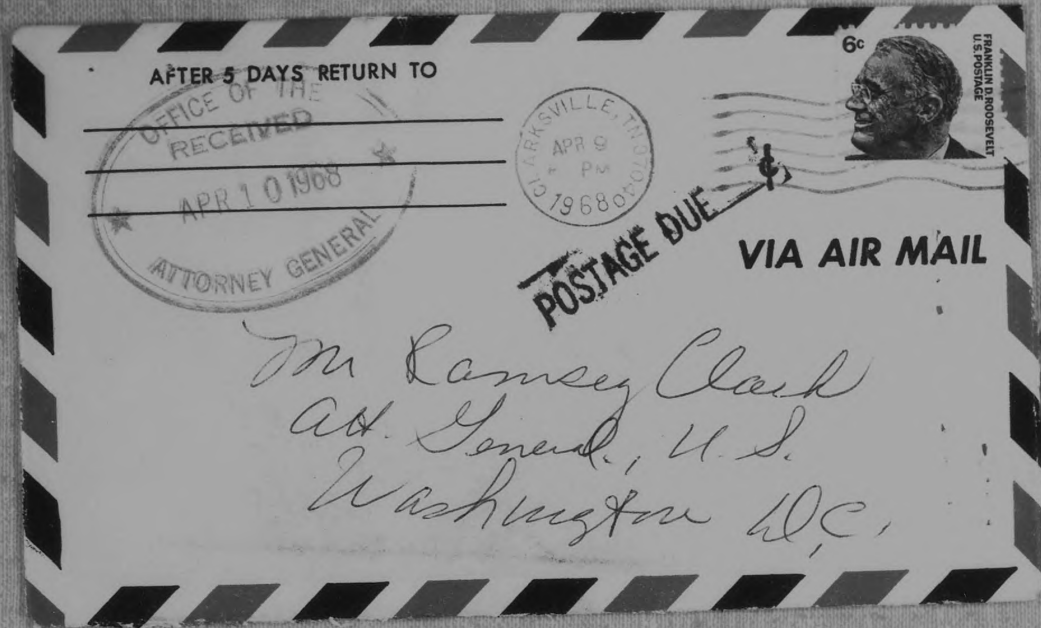 AFTER 5 DAYS RETURN TO
OFFICE OF THE
RECEIVED
APR 10 1968
ATTORNEY GENERAL
CLARKSVILLE, TN 37040
APR 9
PM
1968
6c
FRANKLIN D. ROOSEVELT
U.S. POSTAGE
POSTAGE DUE ¢
VIA AIR MAIL
Mr Ramsey Clark
Att. General., U. S.
Washington D.C.